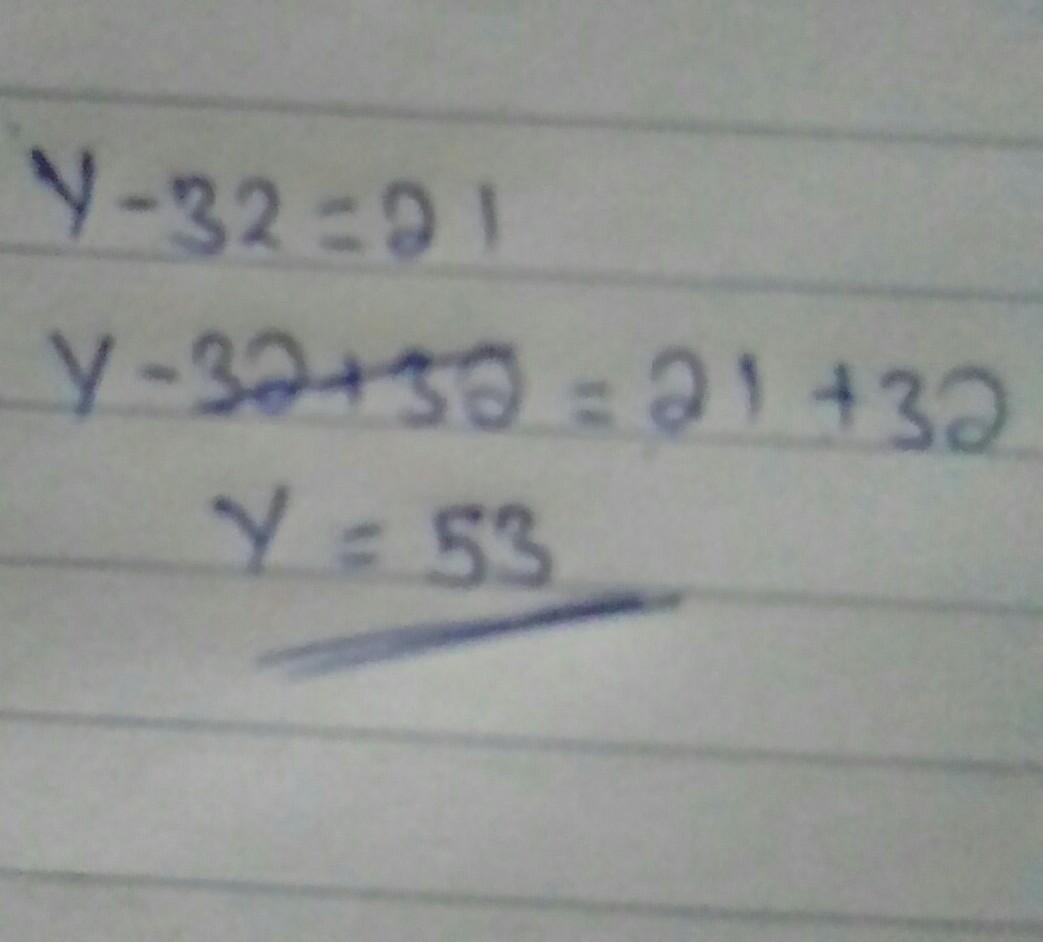 Y-32=21
Y-32+32=21+32
Y=53